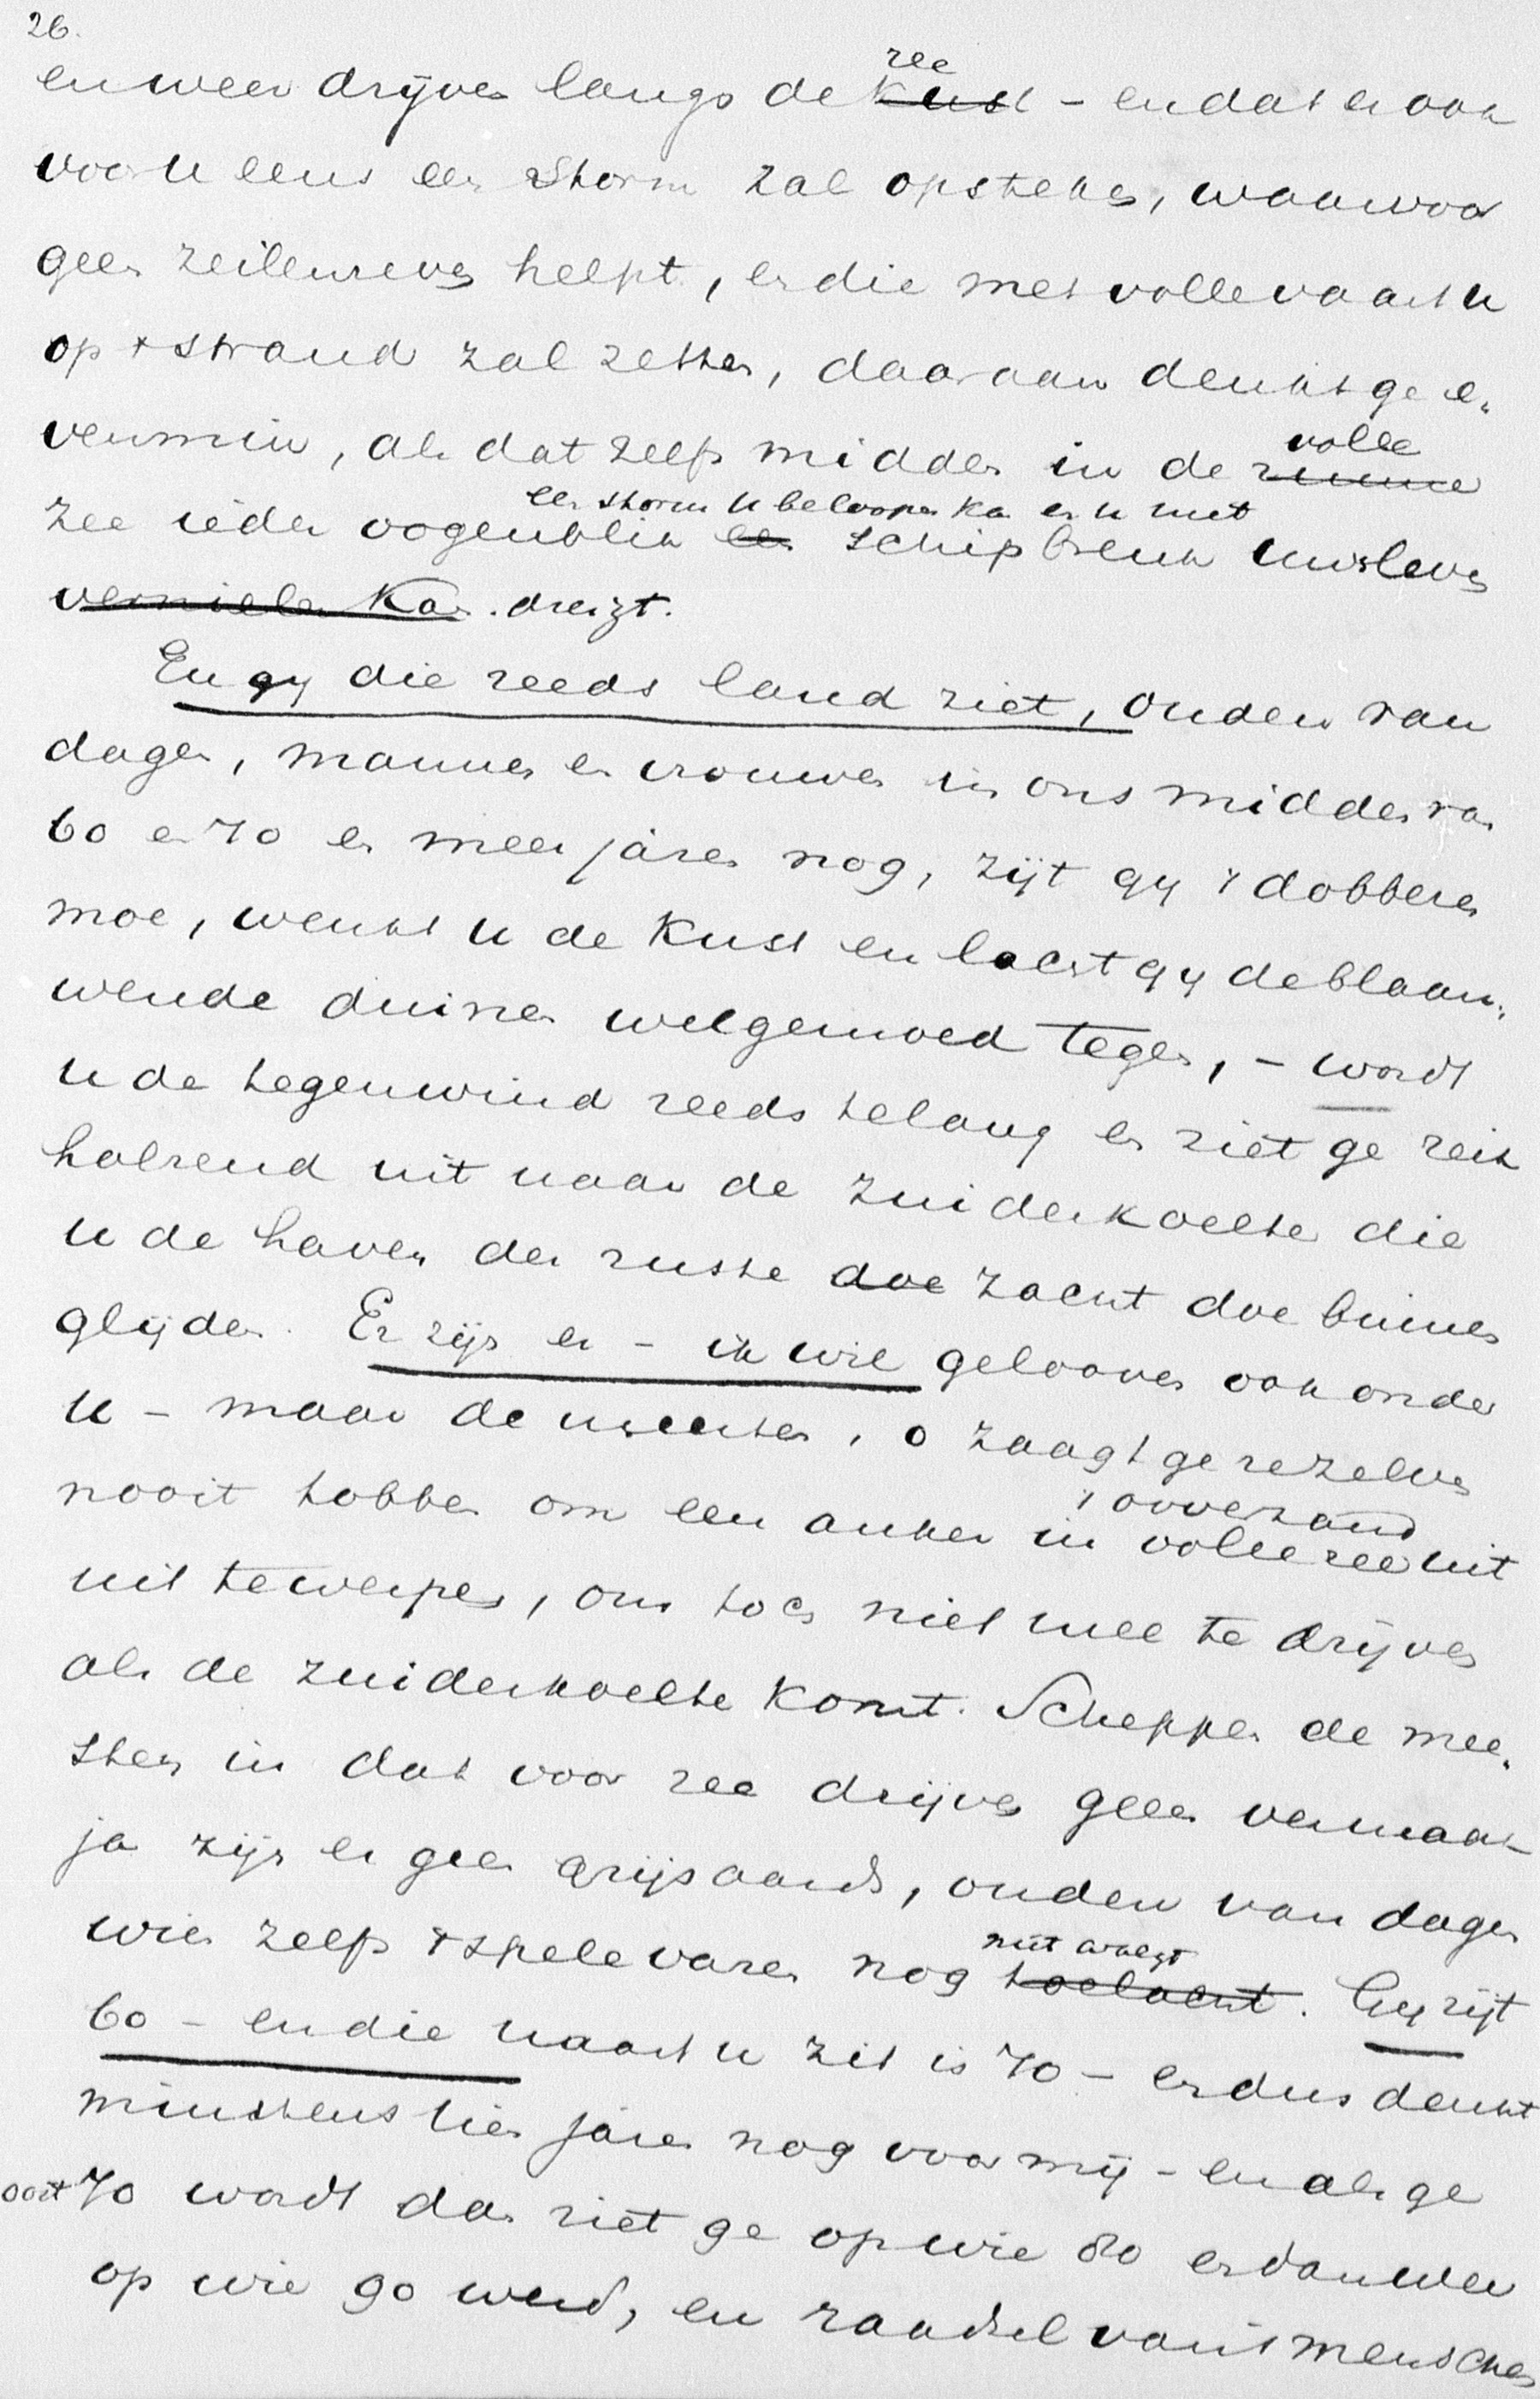 26.
zee
en weer drijven langs de kust - en dat er ook
voor u eens een storm zal opsteken, waarvoor
geen zeilenreven helpt, en die met volle vaart u
op 't strand zal zetten, daaraan denkt ge e„
venmin, als dat zelfs midden in de ruime
volle
een storm u beloopen kan en u met
zee ieder oogenblik een schipbreuk uws levens
vernielen kan. dreigt.
En gij die reeds land ziet, ouden van
dagen, mannen en vrouwen in ons midden van
60 en 70 en meer jaren nog, zijt gij 't dobberen
moe, wenkt u de kust en lacht gij de blaau„
wende duinen welgemoed tegen, - wordt
u de tegenwind reeds te lang en ziet ge reik
halzend uit naar de zuiderkoelte die
u de haven der ruste doe zacht doe binnen
glijden. Er zijn er - ik wil gelooven ook onder
u - maar de meesten, o zaagt ge ze zelve
nooit tobben om een anker in volle zee uit
't ooverzand
uit te werpen, om toch niet mee te drijven
als de zuiderkoelte komt. Scheppen de mee„
sten in dat voor zee drijven geen vermaak
ja zijn er geen grijsaards, ouden van dagen
wien zelfs 't spelevaren nog toelacht. Gij zijt
niet walgt
60 - en die naast u zit is 70 - en dus denkt
minstens tien jaren nog voor mij - en als ge
ooit 70 wordt dan ziet ge op wie 80 en dan weer
op wie 90 werd, en raadsel van 't menschen